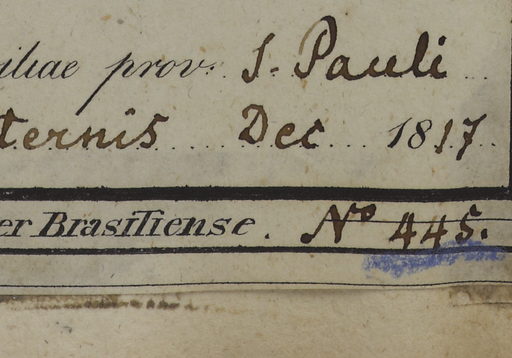 iliae prov. S. Pauli
ternis Dec 1817.
er Brasiliense. No 445.